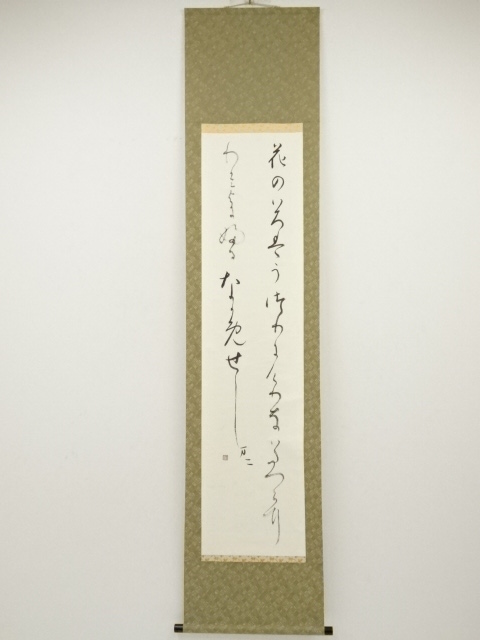 花の色はうつりにけりないたつらに
わか身よにふるなかめせし